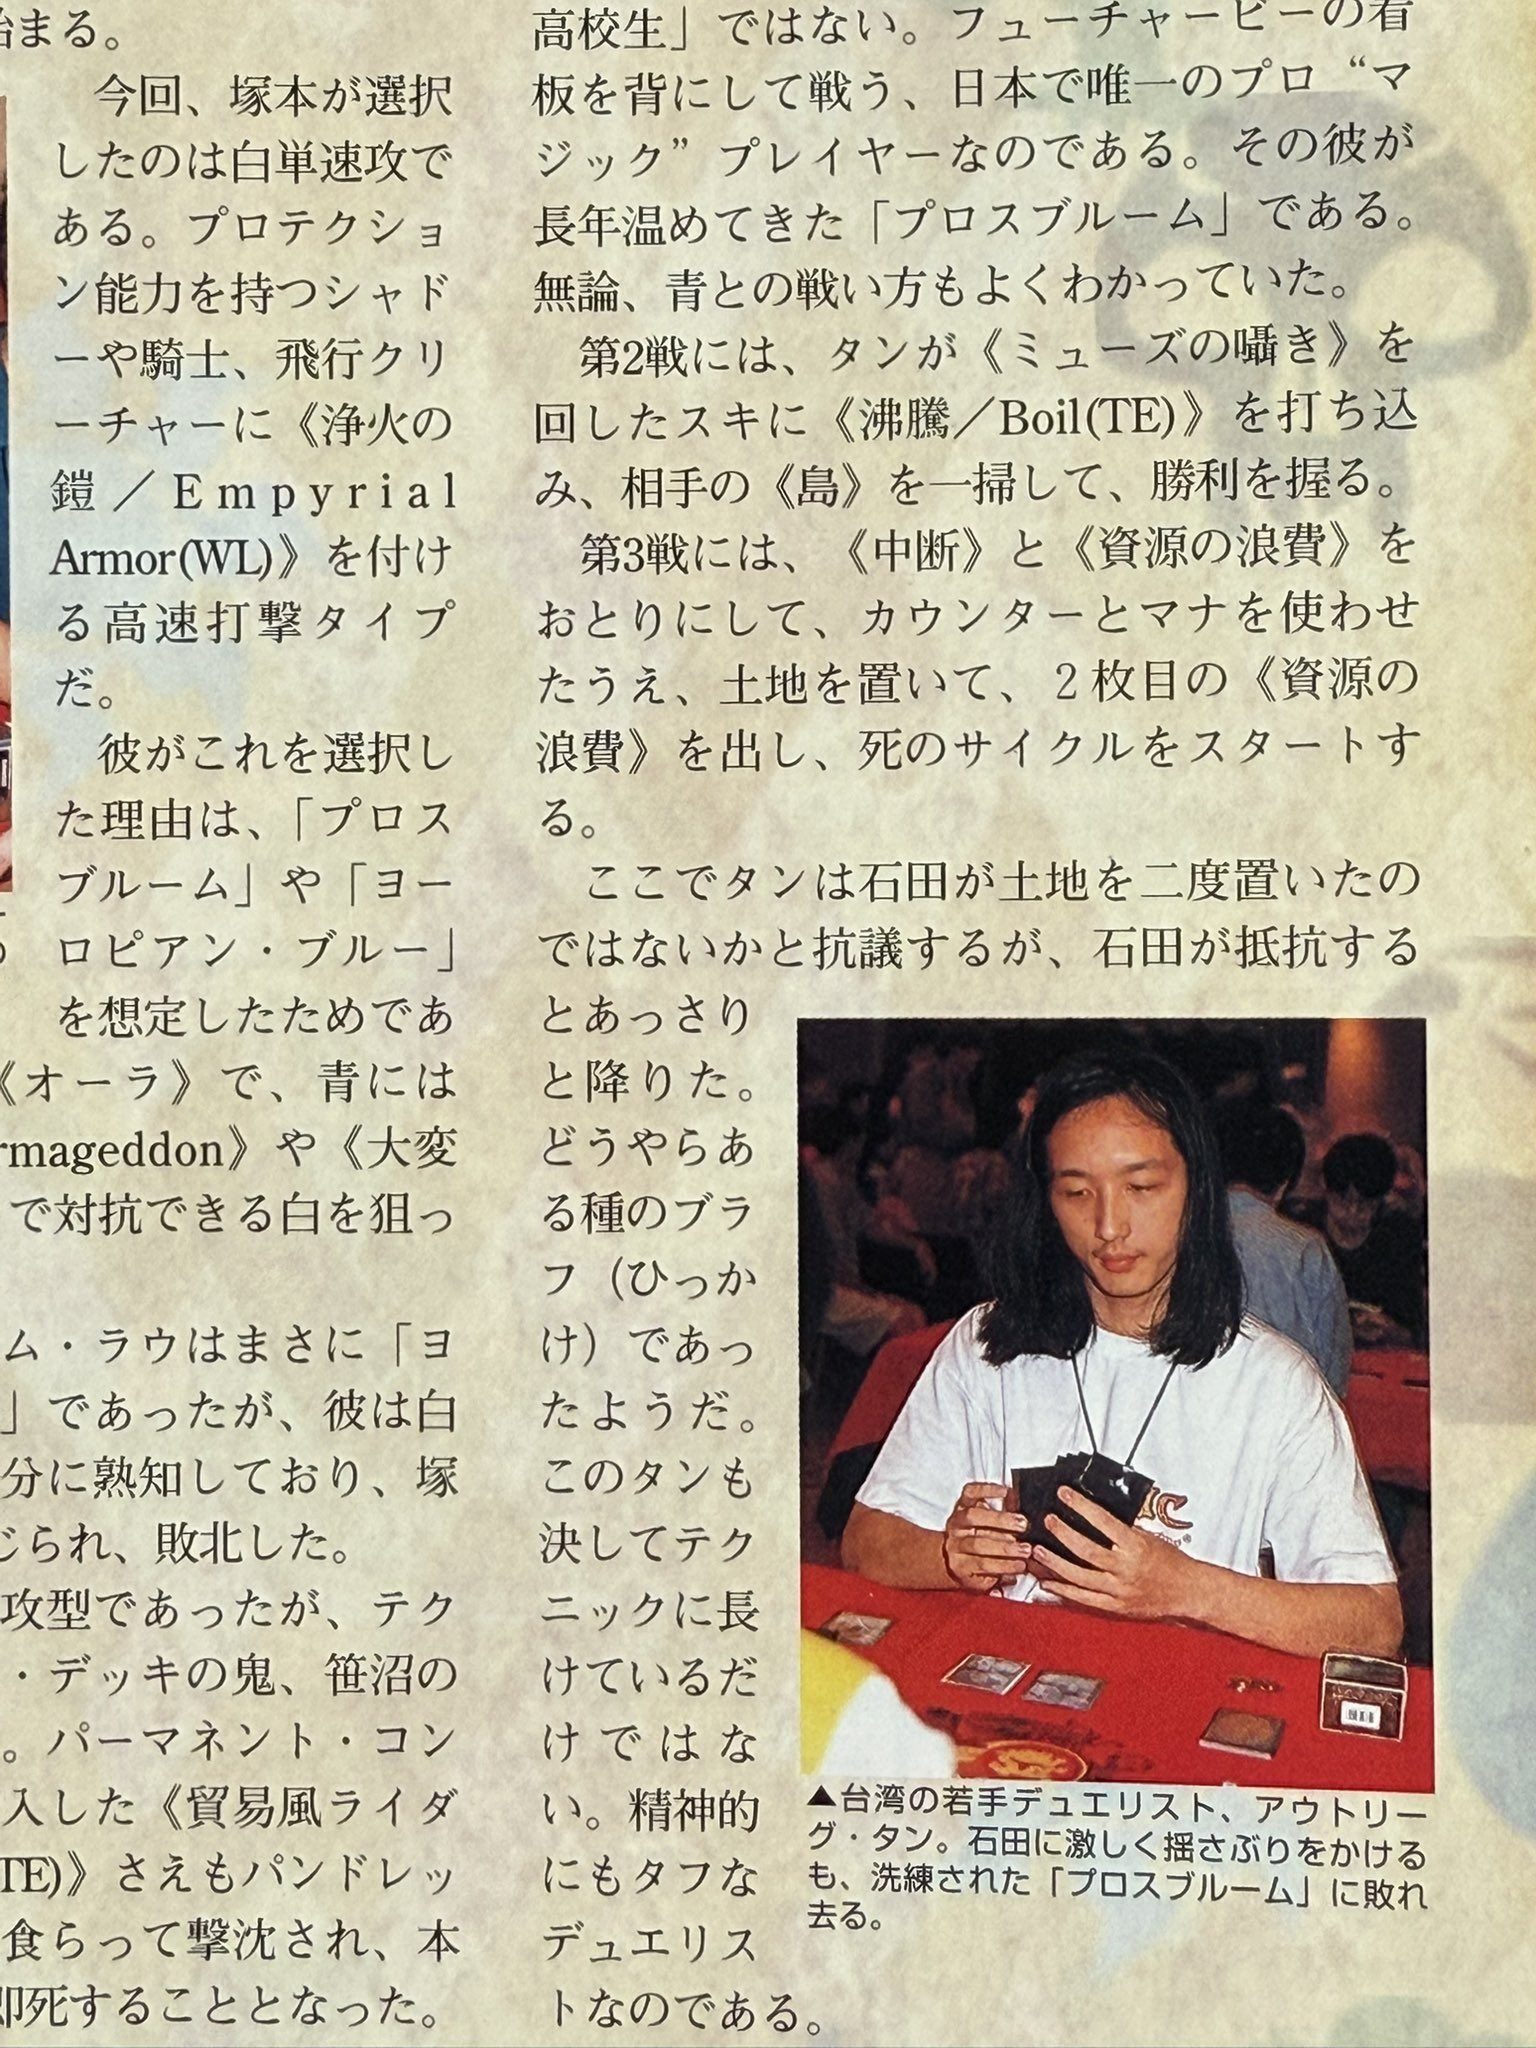 始まる。
今回、塚本が選択
したのは白単速攻で
ある。プロテクショ
ン能力を持つシャド
ーや騎士、飛行クリ
ーチャーに《浄火の
鎧／Empyrial
Armor(WL)》を付け
る高速打撃タイプ
だ。
彼がこれを選択し
た理由は、「プロス
ブルーム」や「ヨー
ロピアン・ブルー」
を想定したためであ
《オーラ》で、青には
rmageddon》や《大変
で対抗できる白を狙っ
ム・ラウはまさに「ヨ
」であったが、彼は白
分に熟知しており、塚
じられ、敗北した。
攻型であったが、テク
・デッキの鬼、笹沼の
。パーマネント・コン
入した《貿易風ライダ
TE)》さえもパンドレッ
食らって撃沈され、本
即死することとなった。
高校生」ではない。フューチャービーの看
板を背にして戦う、日本で唯一のプロ“マ
ジック”プレイヤーなのである。その彼が
長年温めてきた「プロスブルーム」である。
無論、青との戦い方もよくわかっていた。
第2戦には、タンが《ミューズの囁き》を
回したスキに《沸騰／Boil(TE)》を打ち込
み、相手の《島》を一掃して、勝利を握る。
第3戦には、《中断》と《資源の浪費》を
おとりにして、カウンターとマナを使わせ
たうえ、土地を置いて、２枚目の《資源の
浪費》を出し、死のサイクルをスタートす
る。
ここでタンは石田が土地を二度置いたの
ではないかと抗議するが、石田が抵抗する
とあっさり
と降りた。
どうやらあ
る種のブラ
フ（ひっか
け）であっ
たようだ。
このタンも
決してテク
ニックに長
けているだ
けではな
い。精神的
にもタフな
デュエリス
トなのである。
▲台湾の若手デュエリスト、アウトリー
グ・タン。石田に激しく揺さぶりをかける
も、洗練された「プロスブルーム」に敗れ
去る。